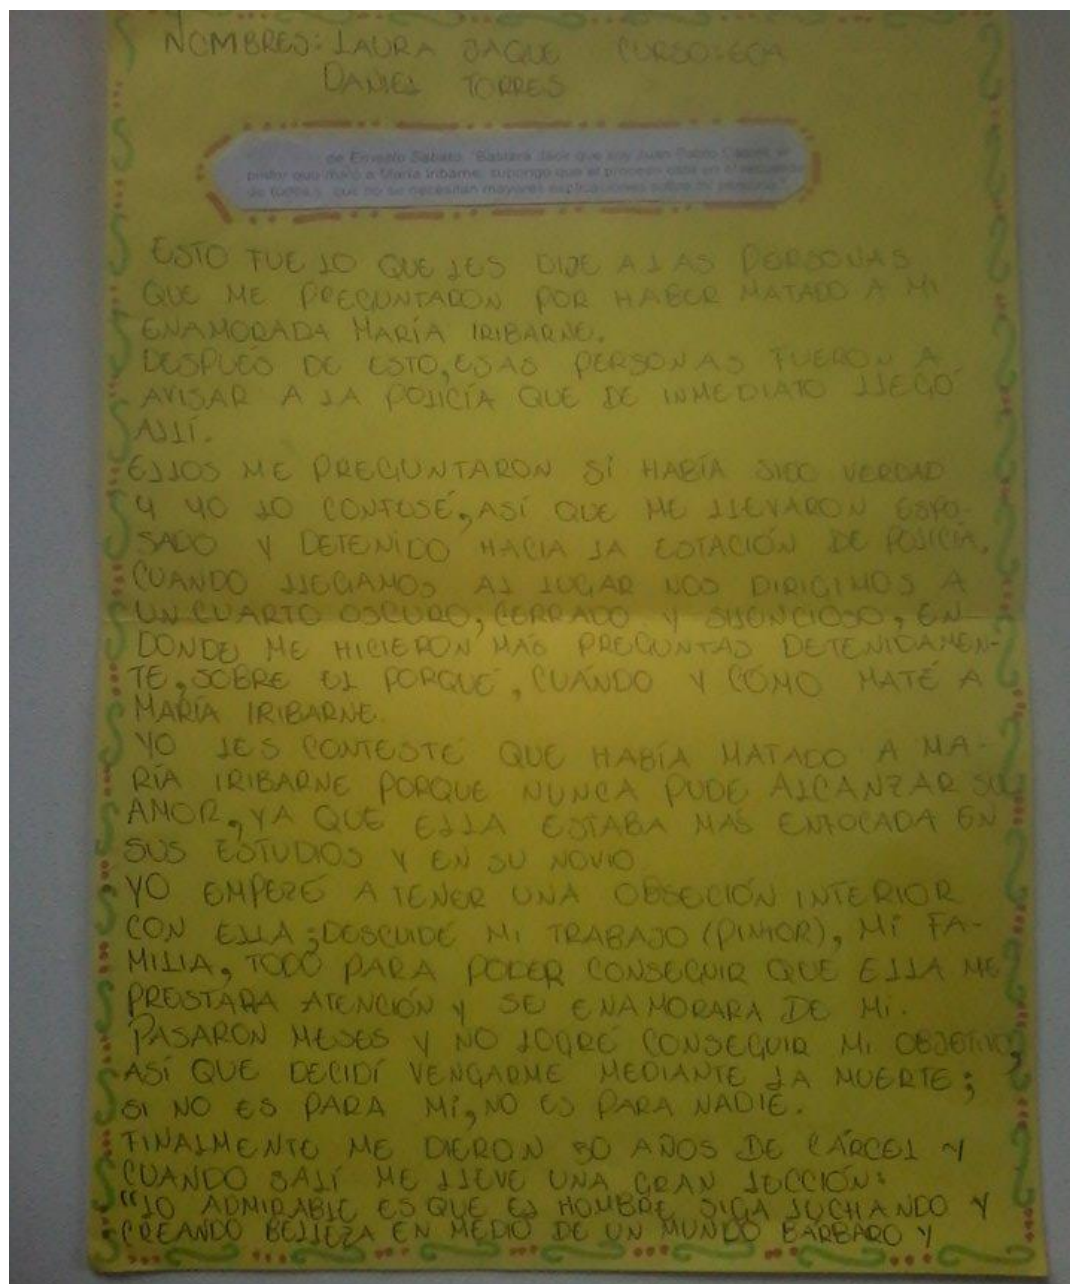 NOMBRES: LAURA JAQUE CURSO: 6OA
DANIEL TORRES
de Ernesto Sábato. "Bastará decir que soy Juan Pablo Castel, el
pintor que mató a María Iribarne; supongo que el proceso está en el recuerdo
de todos y que no se necesitan mayores explicaciones sobre mi persona."
ESTO FUE LO QUE LES DIJE A LAS PERSONAS
QUE ME PREGUNTARON POR HABER MATADO A MI
ENAMORADA MARÍA IRIBARNE.
DESPUES DE ESTO, ESAS PERSONAS FUERON A
AVISAR A LA POLICÍA QUE DE INMEDIATO LLEGÓ
ALLÍ.
ELLOS ME PREGUNTARON SÍ HABÍA SIDO VERDAD
Y YO LO CONFESÉ, ASÍ QUE ME LLEVARON ESPO-
SADO Y DETENIDO HACIA LA ESTACIÓN DE POLICÍA,
CUANDO LLEGAMOS AL LUGAR NOS DIRIGIMOS A
UN CUARTO OSCURO, CERRADO Y SILENCIOSO, EN
DONDE ME HICIERON MÁS PREGUNTAS DETENIDAMEN-
TE, SOBRE EL PORQUÉ, CUÁNDO Y CÓMO MATÉ A
MARÍA IRIBARNE.
YO LES CONTESTÉ QUE HABÍA MATADO A MA-
RÍA IRIBARNE PORQUE NUNCA PUDE ALCANZAR SU
AMOR, YA QUE ELLA ESTABA MÁS ENFOCADA EN
SUS ESTUDIOS Y EN SU NOVIO
YO EMPEZÉ A TENER UNA OBSECIÓN INTERIOR
CON ELLA; DESCUIDÉ MI TRABAJO (PINTOR), MÍ FA-
MILIA, TODO PARA PODER CONSEGUIR QUE ELLA ME
PRESTARA ATENCIÓN Y SE ENAMORARA DE MÍ.
PASARON MESES Y NO LOGRÉ CONSEGUIR MI OBJETIVO,
ASÍ QUE DECIDÍ VENGARME MEDIANTE LA MUERTE;
SI NO ES PARA MÍ, NO ES PARA NADIE.
FINALMENTE ME DIERON 30 AÑOS DE CÁRCEL Y
CUANDO SALÍ ME LLEVE UNA GRAN LECCIÓN:
"LO ADMIRABLE ES QUE EL HOMBRE SIGA LUCHANDO Y
CREANDO BELLEZA EN MEDIO DE UN MUNDO BÁRBARO Y